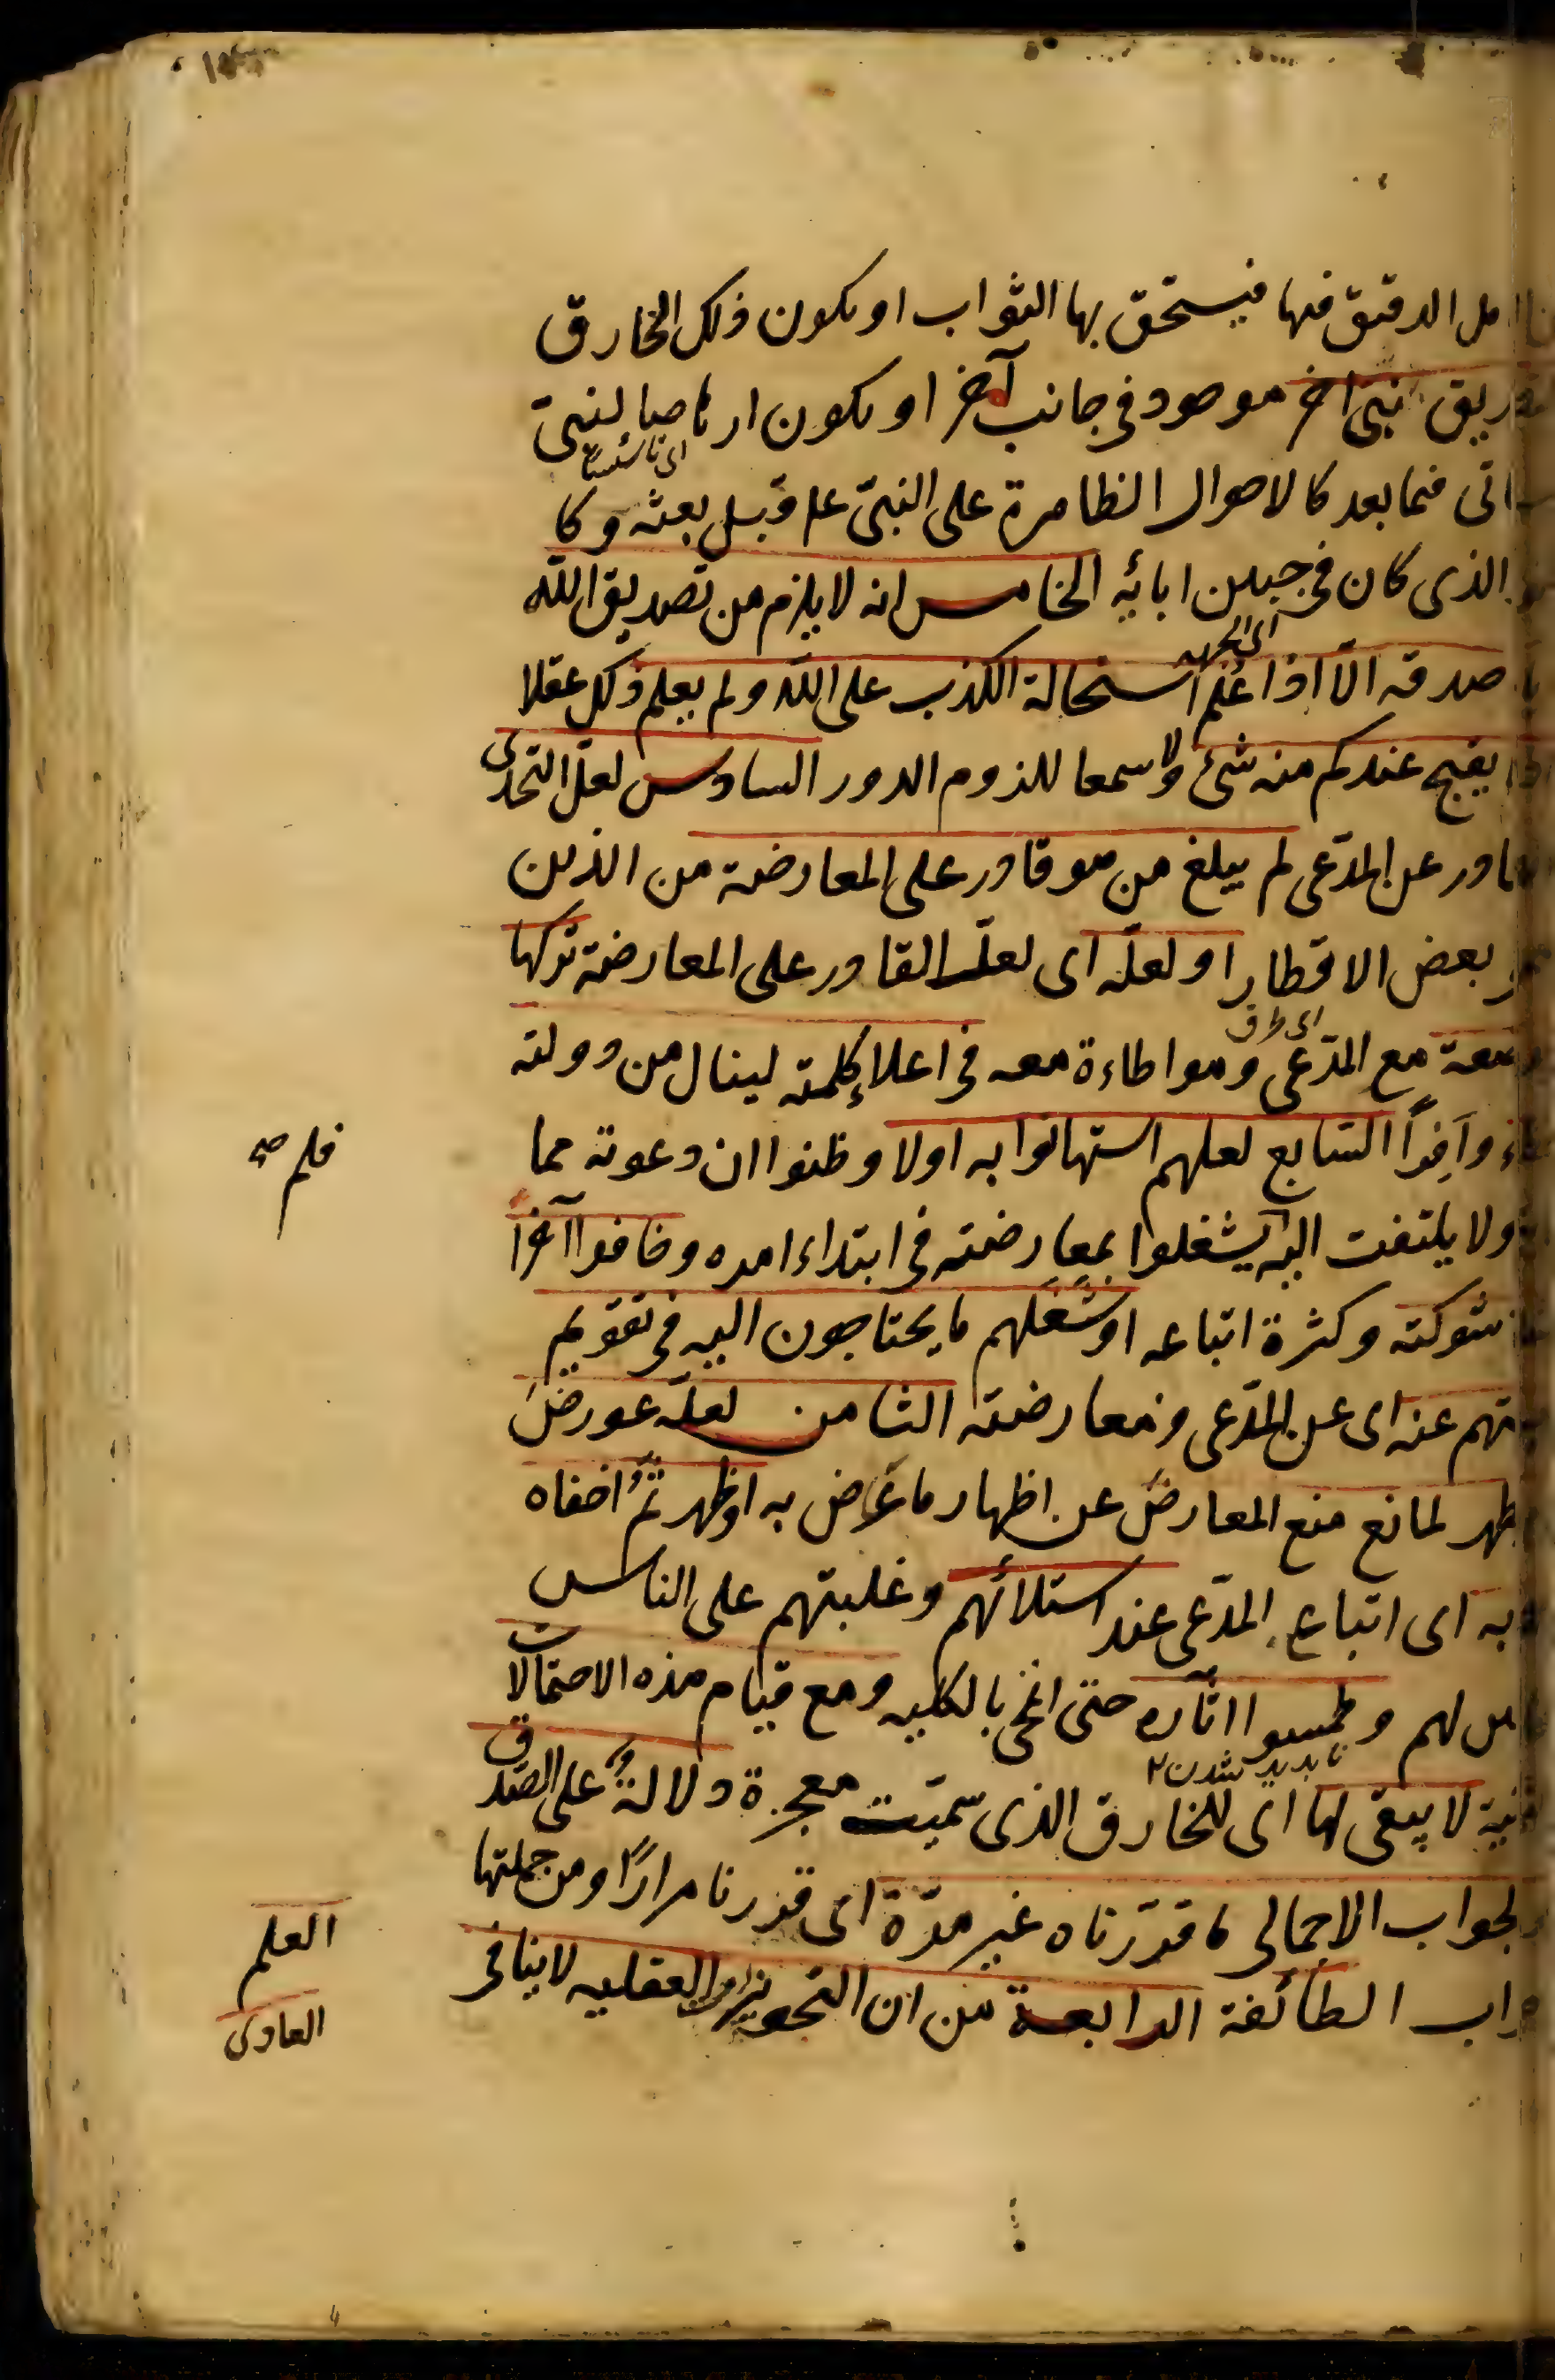 الدقيق فيها فيستحق بها الثواب او يكون ذلك الخارق
نبى آخر موجود فى جانب آخر او يكون ارهاصا لنبىّ
اى تاسيسا
فيما بعد كالاحوال الظاهرة على النبىّ عم قبل بعثه وكا
الذى كان فى جبين ابائه الخامس انه لا يلزم من تصديق الله
صدقه الّا اذا عُلم استحالة الكذب على الله ولم يعلم ذلك عقلا
يقبح عندكم منه شئ ولا سمعا للزوم الدور السادس لعلّ التحدى
عن المدّعى لم يبلغ من هو قادر على المعارضة من الذين
بعض الاقطار او لعلّه اى لعلّ القادر على المعارضة تركها
مع المدّعى ومواطاءة معه فى اعلاء كلمته لينال من دولته
وافرًا السّابع لعلهم استهانوا به اولا وظنوا ان دعوته مما
فلم صح
ولا يلتفت اليه يشغلوا بمعارضته فى ابتداء امره وخافوا آخرًا
شوكته وكثرة اتباعه او شغلهم ما يحتاجون اليه فى تقويم
عنه اى عن المدّعى ومعارضته الثامن لعلّه عورض
لمانع منع المعارض عن اظهار ما عارض به او ظهر ثمّ اخفاه
به اى اتباع المدّعى عند استلائهم وغلبتهم على الناس
لهم وطمسوا اثاره حتى انمحى بالكليه ومع قيام هذه الاحتمالات
ناپدید شدن ٢
لا يبقى لها اى للخارق الذى سمّيت معجزة دلالةٌ على الصّدق
الجواب الاجمالى ما قدّرناه غير مرّة اى قررنا مرارًا ومن جملتها
جواب الطائفة الرابعة من ان التجويزات العقليه لا ينافى
العلم
العادى